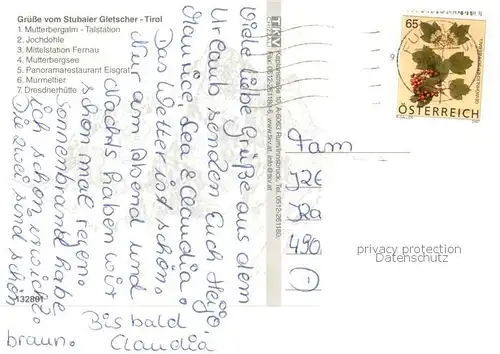 Grüße vom Stubaier Gletscher - Tirol
1. Mutterbergalm - Talstation
2. Jochdohle
3. Mittelstation Fernau
4. Mutterbergsee
5. Panoramarestaurant Eisgrat
6. Murmeltier
7. Dresdnerhütte
132801
Viele liebe Grüße aus dem
Urlaub senden Euch Heijo,
Maurice, Lea & Claudia.
Das Wetter ist schön.
Nur am Abend und
Nachts haben wir
schon mal regen.
Sonnenbrand habe
ich schon inwich.
Die zwei sind schön
braun.
Bis bald
Claudia
TKV
65
ÖSTERREICH
Fam
490
D
privacy protection
Datenschutz